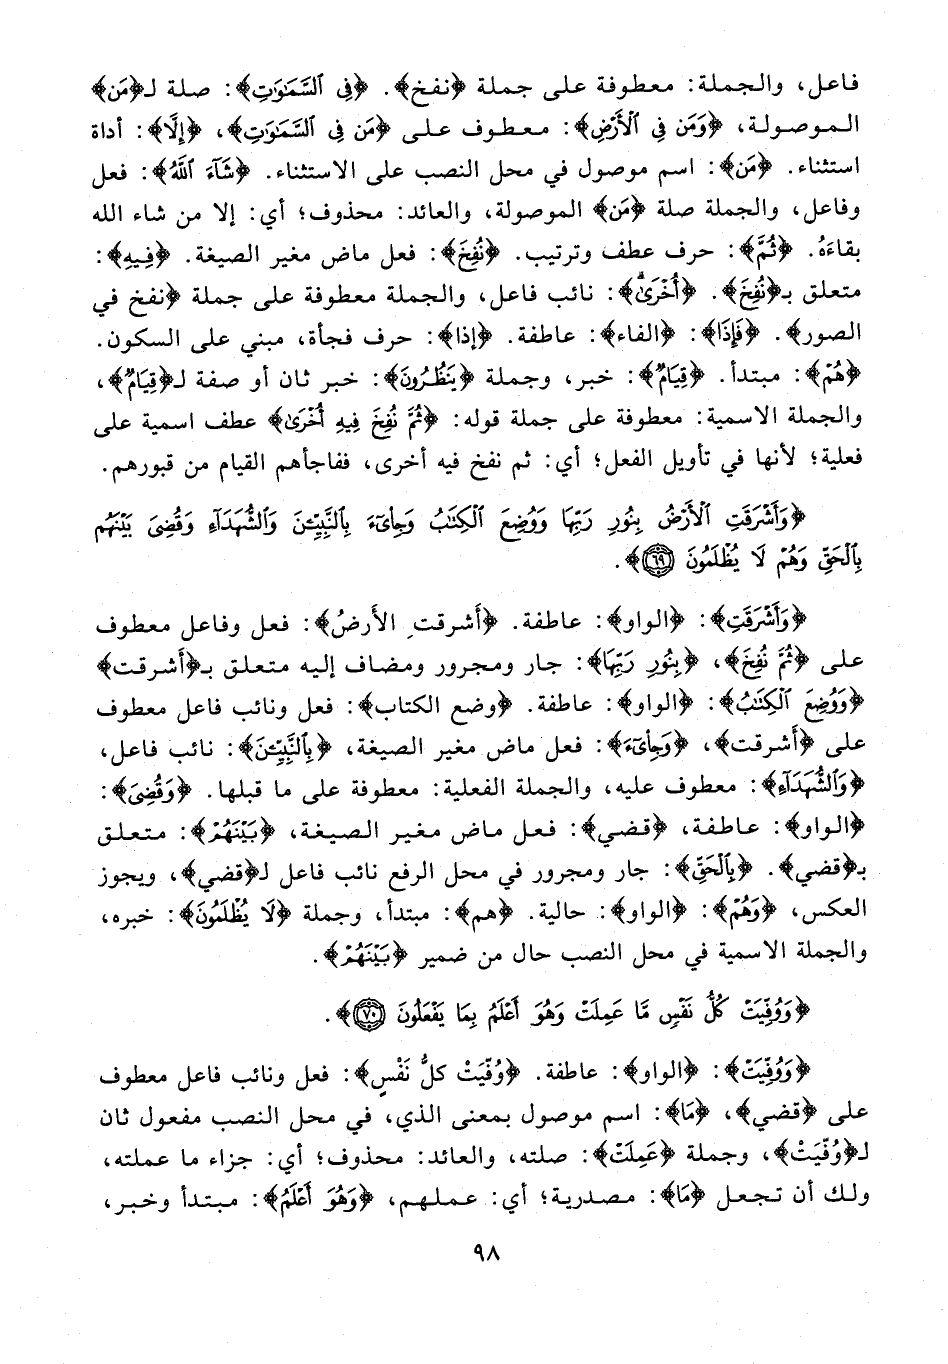 فاعل، والجملة: معطوفة على جملة ﴿نفخ﴾. ﴿فِي ٱلسَّمَٰوَٰتِ﴾: صلة لـ﴿مَن﴾
الموصولة، ﴿وَمَن فِي ٱلْأَرْضِ﴾: معطوف على ﴿مَن فِي ٱلسَّمَٰوَٰتِ﴾، ﴿إِلَّا﴾: أداة
استثناء. ﴿مَن﴾: اسم موصول في محل النصب على الاستثناء. ﴿شَآءَ ٱللَّهُ﴾: فعل
وفاعل، والجملة صلة ﴿مَن﴾ الموصولة، والعائد: محذوف؛ أي: إلا من شاء الله
بقاءَهُ. ﴿ثُمَّ﴾: حرف عطف وترتيب. ﴿نُفِخَ﴾: فعل ماض مغير الصيغة. ﴿فِيهِ﴾:
متعلق بـ﴿نُفِخَ﴾. ﴿أُخْرَىٰ﴾: نائب فاعل، والجملة معطوفة على جملة ﴿نفخ في
الصور﴾. ﴿فَإِذَا﴾: ﴿الفاء﴾: عاطفة. ﴿إذا﴾: حرف فجأة، مبني على السكون.
﴿هُمْ﴾: مبتدأ. ﴿قِيَامٌ﴾: خبر، وجملة ﴿يَنظُرُونَ﴾: خبر ثان أو صفة لـ﴿قِيَامٌ﴾،
والجملة الاسمية: معطوفة على جملة قوله: ﴿ثُمَّ نُفِخَ فِيهِ أُخْرَىٰ﴾ عطف اسمية على
فعلية؛ لأنها في تأويل الفعل؛ أي: ثم نفخ فيه أخرى، ففاجأهم القيام من قبورهم.
﴿وَأَشْرَقَتِ ٱلْأَرْضُ بِنُورِ رَبِّهَا وَوُضِعَ ٱلْكِتَٰبُ وَجِا۟ىٓءَ بِٱلنَّبِيِّـۧنَ وَٱلشُّهَدَآءِ وَقُضِىَ بَيْنَهُم
بِٱلْحَقِّ وَهُمْ لَا يُظْلَمُونَ ﴿٦٩﴾﴾.
﴿وَأَشْرَقَتِ﴾: ﴿الواو﴾: عاطفة. ﴿أشرقت الأرضُ﴾: فعل وفاعل معطوف
على ﴿ثُمَّ نُفِخَ﴾، ﴿بِنُورِ رَبِّهَا﴾: جار ومجرور ومضاف إليه متعلق بـ﴿أشرقت﴾
﴿وَوُضِعَ ٱلْكِتَٰبُ﴾: ﴿الواو﴾: عاطفة. ﴿وضع الكتاب﴾: فعل ونائب فاعل معطوف
على ﴿أشرقت﴾، ﴿وَجِا۟ىٓءَ﴾: فعل ماض مغير الصيغة، ﴿بِٱلنَّبِيِّـۧنَ﴾: نائب فاعل،
﴿وَٱلشُّهَدَآءِ﴾: معطوف عليه، والجملة الفعلية: معطوفة على ما قبلها. ﴿وَقُضِىَ﴾:
﴿الواو﴾: عاطفة، ﴿قضي﴾: فعل ماض مغير الصيغة، ﴿بَيْنَهُمْ﴾: متعلق
بـ﴿قضي﴾. ﴿بِٱلْحَقِّ﴾: جار ومجرور في محل الرفع نائب فاعل لـ﴿قضي﴾، ويجوز
العكس، ﴿وَهُمْ﴾: ﴿الواو﴾: حالية. ﴿هم﴾: مبتدأ، وجملة ﴿لَا يُظْلَمُونَ﴾: خبره،
والجملة الاسمية في محل النصب حال من ضمير ﴿بَيْنَهُمْ﴾.
﴿وَوُفِّيَتْ كُلُّ نَفْسٍ مَّا عَمِلَتْ وَهُوَ أَعْلَمُ بِمَا يَفْعَلُونَ ﴿٧٠﴾﴾.
﴿وَوُفِّيَتْ﴾: ﴿الواو﴾: عاطفة. ﴿وُفِّيَتْ كلُّ نَفْسٍ﴾: فعل ونائب فاعل معطوف
على ﴿قضي﴾، ﴿مَا﴾: اسم موصول بمعنى الذي، في محل النصب مفعول ثان
لـ﴿وُفِّيَتْ﴾، وجملة ﴿عَمِلَتْ﴾: صلته، والعائد: محذوف؛ أي: جزاء ما عملته،
ولك أن تجعل ﴿مَا﴾: مصدرية؛ أي: عملهم، ﴿وَهُوَ أَعْلَمُ﴾: مبتدأ وخبر،
٩٨